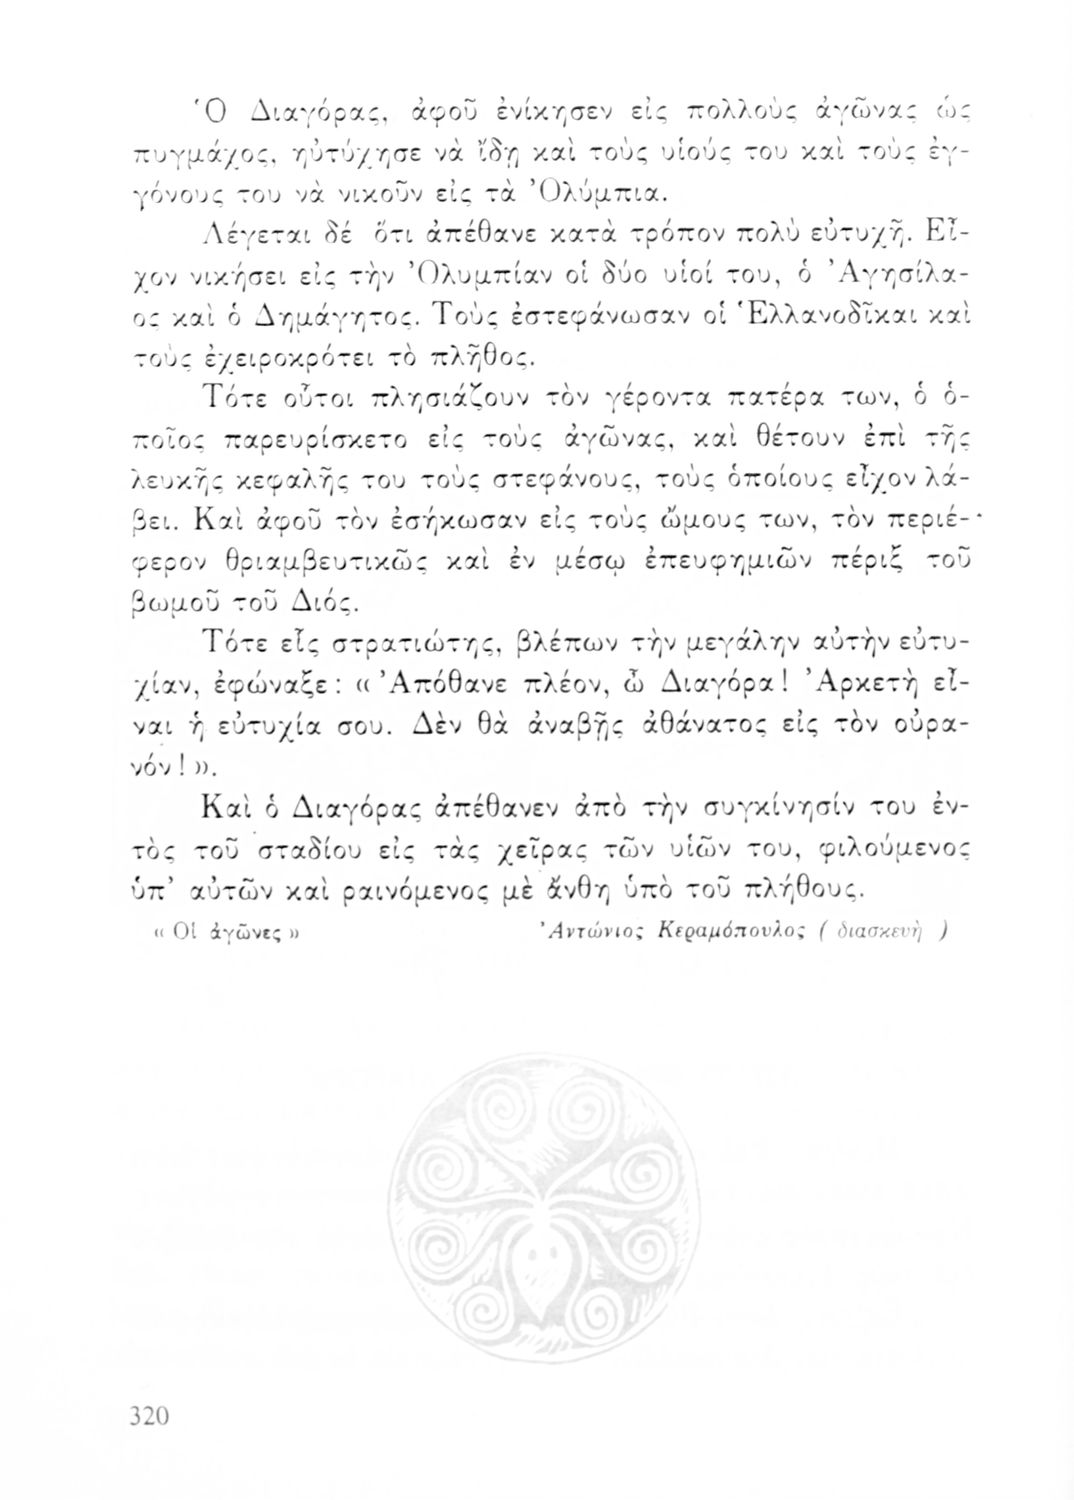 Ὁ Διαγόρας, ἀφοῦ ἐνίκησεν εἰς πολλοὺς ἀγῶνας ὡς
πυγμάχος, ηὐτύχησε νὰ ἴδῃ καὶ τοὺς υἱούς του καὶ τοὺς ἐγ-
γόνους του νὰ νικοῦν εἰς τὰ Ὀλύμπια.
Λέγεται δέ ὅτι ἀπέθανε κατὰ τρόπον πολὺ εὐτυχῆ. Εἶ-
χον νικήσει εἰς τὴν Ὀλυμπίαν οἱ δύο υἱοί του, ὁ Ἀγησίλα-
ος καὶ ὁ Δημάγητος. Τοὺς ἐστεφάνωσαν οἱ Ἑλλανοδῖκαι καὶ
τοὺς ἐχειροκρότει τὸ πλῆθος.
Τότε οὗτοι πλησιάζουν τὸν γέροντα πατέρα των, ὁ ὁ-
ποῖος παρευρίσκετο εἰς τοὺς ἀγῶνας, καὶ θέτουν ἐπὶ τῆς
λευκῆς κεφαλῆς του τοὺς στεφάνους, τοὺς ὁποίους εἶχον λά-
βει. Καὶ ἀφοῦ τὸν ἐσήκωσαν εἰς τοὺς ὤμους των, τὸν περιέ-
φερον θριαμβευτικῶς καὶ ἐν μέσῳ ἐπευφημιῶν πέριξ τοῦ
βωμοῦ τοῦ Διός.
Τότε εἷς στρατιώτης, βλέπων τὴν μεγάλην αὐτὴν εὐτυ-
χίαν, ἐφώναξε : « Ἀπόθανε πλέον, ὦ Διαγόρα ! Ἀρκετὴ εἶ-
ναι ἡ εὐτυχία σου. Δὲν θὰ ἀναβῇς ἀθάνατος εἰς τὸν οὐρα-
νόν ! ».
Καὶ ὁ Διαγόρας ἀπέθανεν ἀπὸ τὴν συγκίνησίν του ἐν-
τὸς τοῦ σταδίου εἰς τὰς χεῖρας τῶν υἱῶν του, φιλούμενος
ὑπ’ αὐτῶν καὶ ραινόμενος μὲ ἄνθη ὑπὸ τοῦ πλήθους.
« Οἱ ἀγῶνες » Ἀντώνιος Κεραμόπουλος ( διασκευὴ )
320